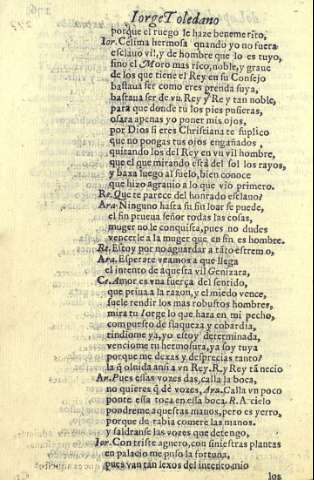 Iorge Toledano
porque el ruego le haze benemerito,
Ior. Celima hermosa quando yo no fuera
esclauo vil, y de hombre que lo es tuyo,
sino el Moro mas rico, noble, y graue
de los que tiene el Rey en su Consejo
bastaua ser como eres prenda suya,
bastaua ser de vn Rey y Rey tan noble,
para que donde tu los pies pusieras,
osara apenas yo poner mis ojos,
por Dios si eres Christiana te suplico
que no pongas tus ojos engañados,
quitando los del Rey en vn vil hombre,
que el que mirando està del sol los rayos,
y baxa luego al suelo, bien conoce
que hizo agrauio a lo que vio primero.
Re. Que te parece del honrado esclauo?
Ara. Ninguno hasta su fin loar se puede,
el fin prueua señor todas las cosas,
muger no le conquista, pues no dudes
vencerle a la muger que en fin es hombre.
Re. Estoy por no aguardar a tāto estremo,
Ara. Esperate veamos a que llega
el intento de aquesta vil Genizara,
Ce. Amor es vna fuerça del sentido,
que priua a la razon, y el miedo vence,
suele rendir los mas robustos hombres,
mira tu Iorge lo que haza en mi pecho,
compuesto de flaqueza y cobardia,
rindiome ya, yo estoy determinada,
vencióme tu hermosura, ya soy tuya
porque me dexas y desprecias tanto?
la q̄ oluida ansi a vn Rey. R. y Rey tā necio
Ar. Pues essas vozes das, calla la boca,
no quieras q̄ dè vozes, Ara. Calla vn poco
ponte essa toca en essa boca. R. A cielo
pondreme aquestas manos, pero es yerro,
porque de rabia comere las manos.
y saldranse las vozes que detengo,
Ior. Con triste aguero, con siniestras plantas
en palacio me puso la fortuna,
pues van tan lexos del intento mio
los